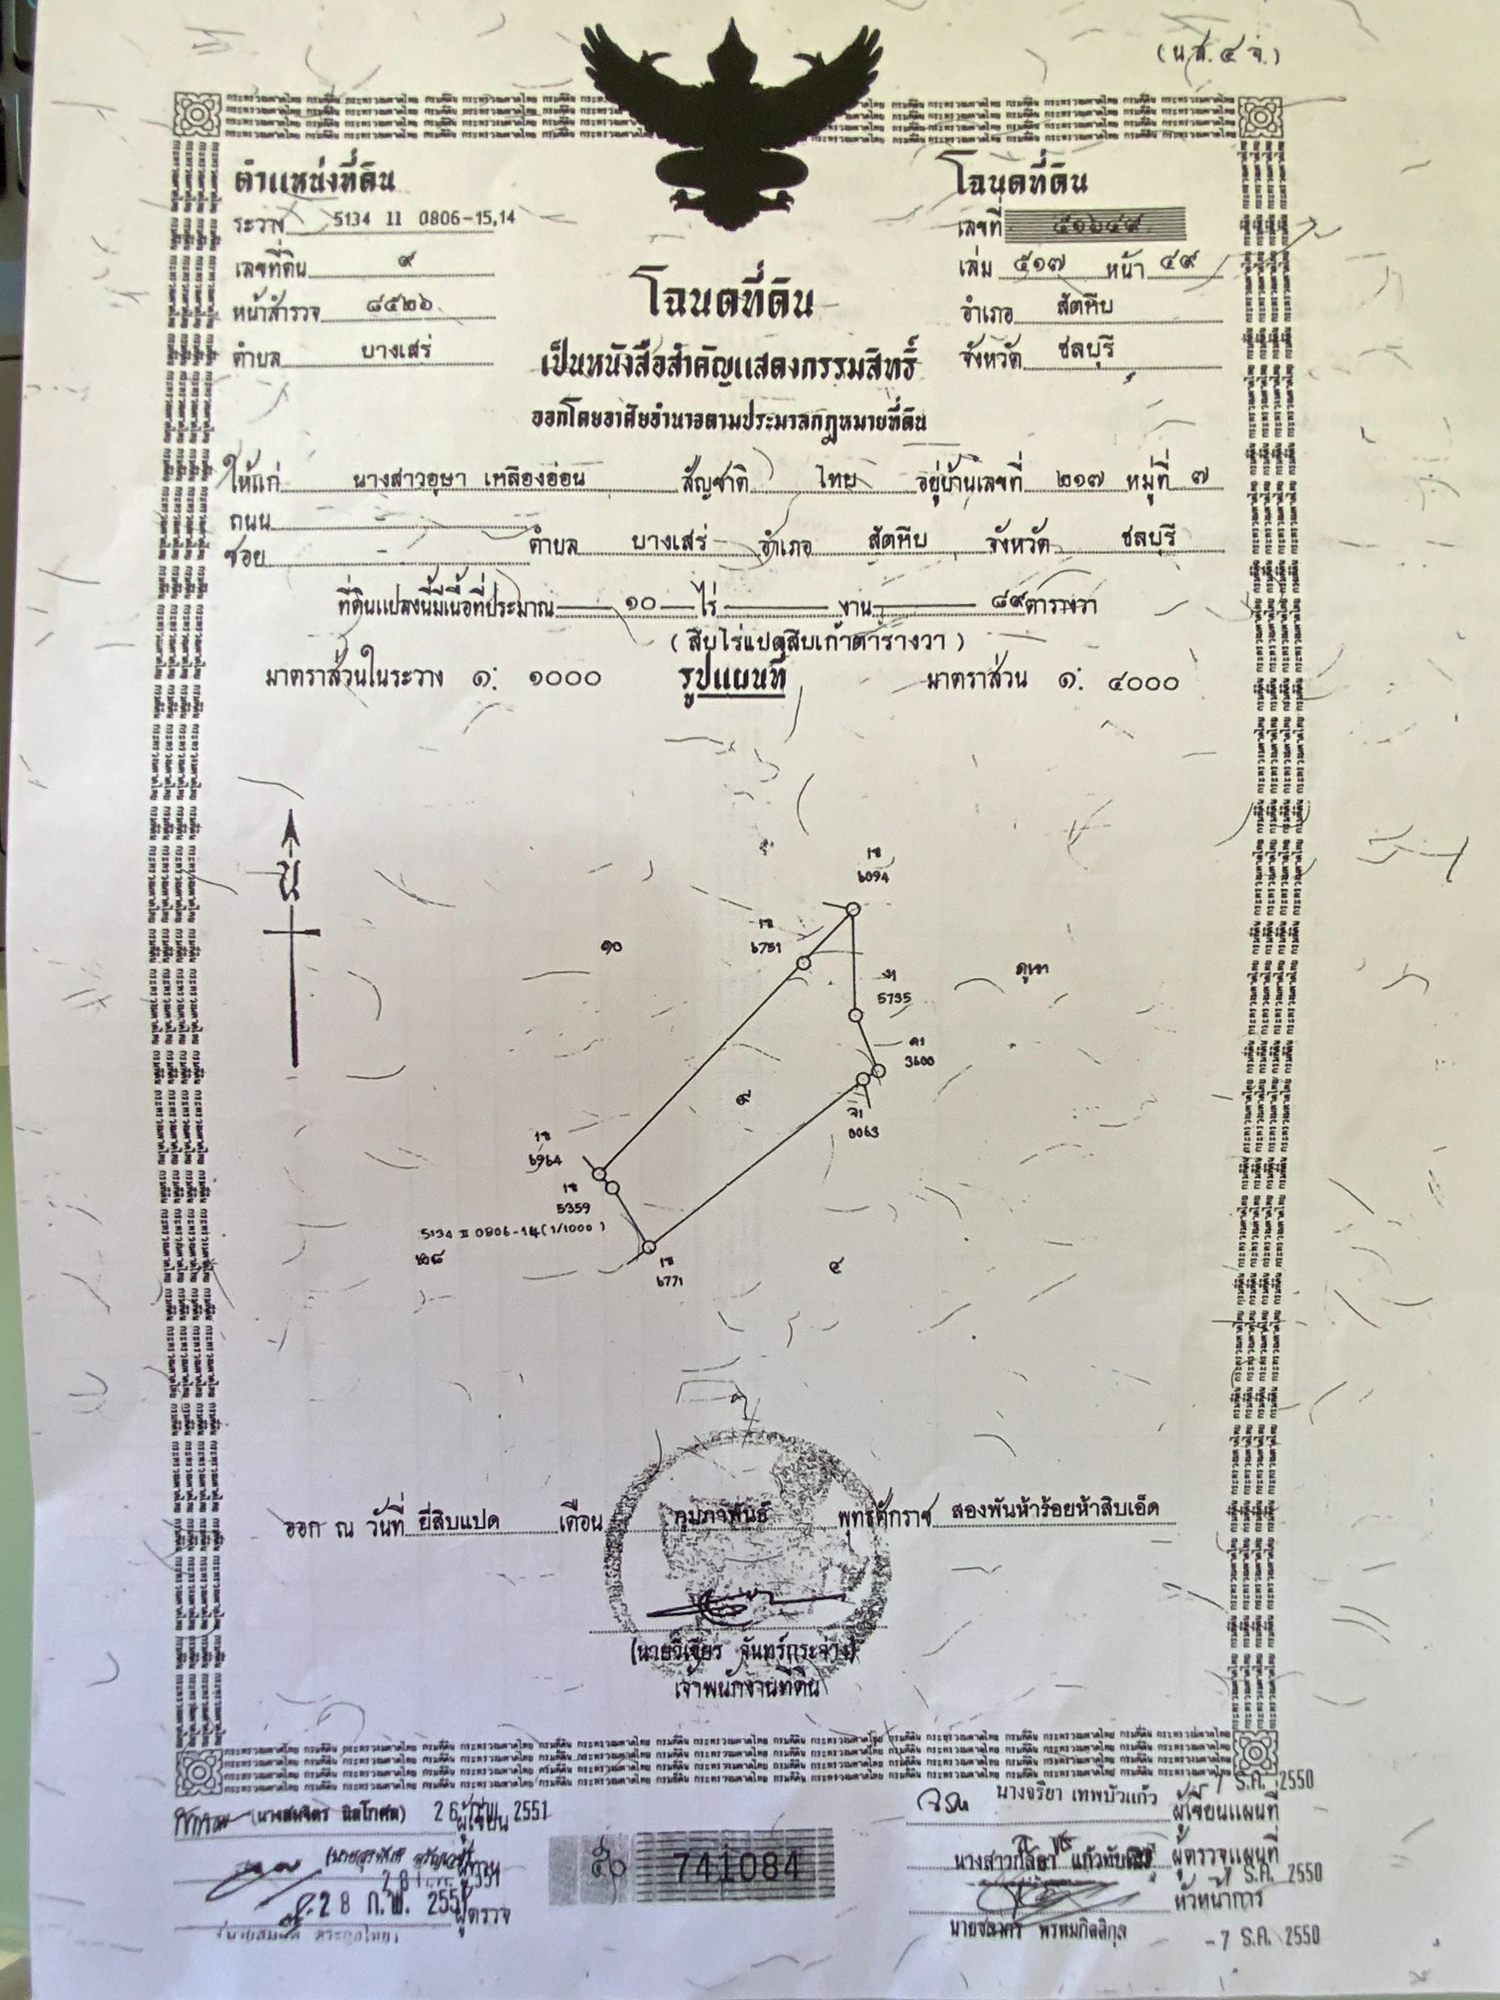 (น.ส.๔ จ.)
ตำแหน่งที่ดิน
ระวาง 5134 II 0806-15,14
เลขที่ดิน ๙
หน้าสำรวจ ๘๕๒๖
ตำบล บางเสร่
โฉนดที่ดิน
เลขที่ ๕๑๖๔๙
เล่ม ๕๑๗ หน้า ๔๙
อำเภอ สัตหีบ
จังหวัด ชลบุรี
โฉนดที่ดิน
เป็นหนังสือสำคัญแสดงกรรมสิทธิ์
ออกโดยอาศัยอำนาจตามประมวลกฎหมายที่ดิน
ให้แก่ นางสาวอุษา เหลืองอ่อน สัญชาติ ไทย อยู่บ้านเลขที่ ๒๑๗ หมู่ที่ ๗
ถนน -
ซอย - ตำบล บางเสร่ อำเภอ สัตหีบ จังหวัด ชลบุรี
ที่ดินแปลงนี้มีเนื้อที่ประมาณ ๑๐ ไร่ งาน ๘๙ ตารางวา
(สิบไร่แปดสิบเก้าตารางวา)
มาตราส่วนในระวาง ๑: ๑๐๐๐ รูปแผนที่ มาตราส่วน ๑: ๔๐๐๐
น
6094
6751
๑๐
5735
ภูเขา
3600
๙
0063
6964
5359
5134 II 0806-14(1/1000)
6771
๔
ออก ณ วันที่ ยี่สิบแปด เดือน กุมภาพันธ์ พุทธศักราช สองพันห้าร้อยห้าสิบเอ็ด
(นายวิเชียร จันทร์กระจ่าง)
เจ้าพนักงานที่ดิน
26 2551 ผู้เขียน
ผู้ทาน
28 ก.พ. 2551 ผู้ตรวจ
๕๐ 741084
-7 ธ.ค. 2550
นางจริยา เทพบัวแก้ว ผู้เขียนแผนที่
ผู้ตรวจแผนที่
ธ.ค. 2550
หัวหน้าการ
-7 ธ.ค. 2550